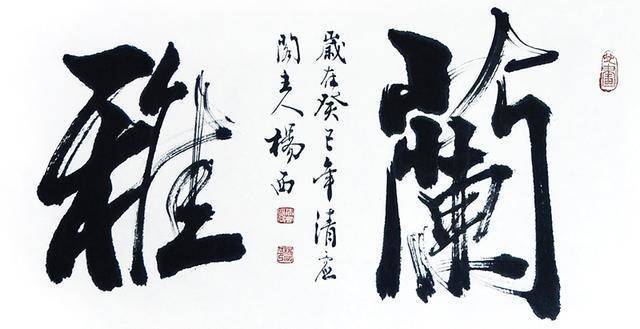 蘭雅
歲在癸巳年清
閣主人楊西